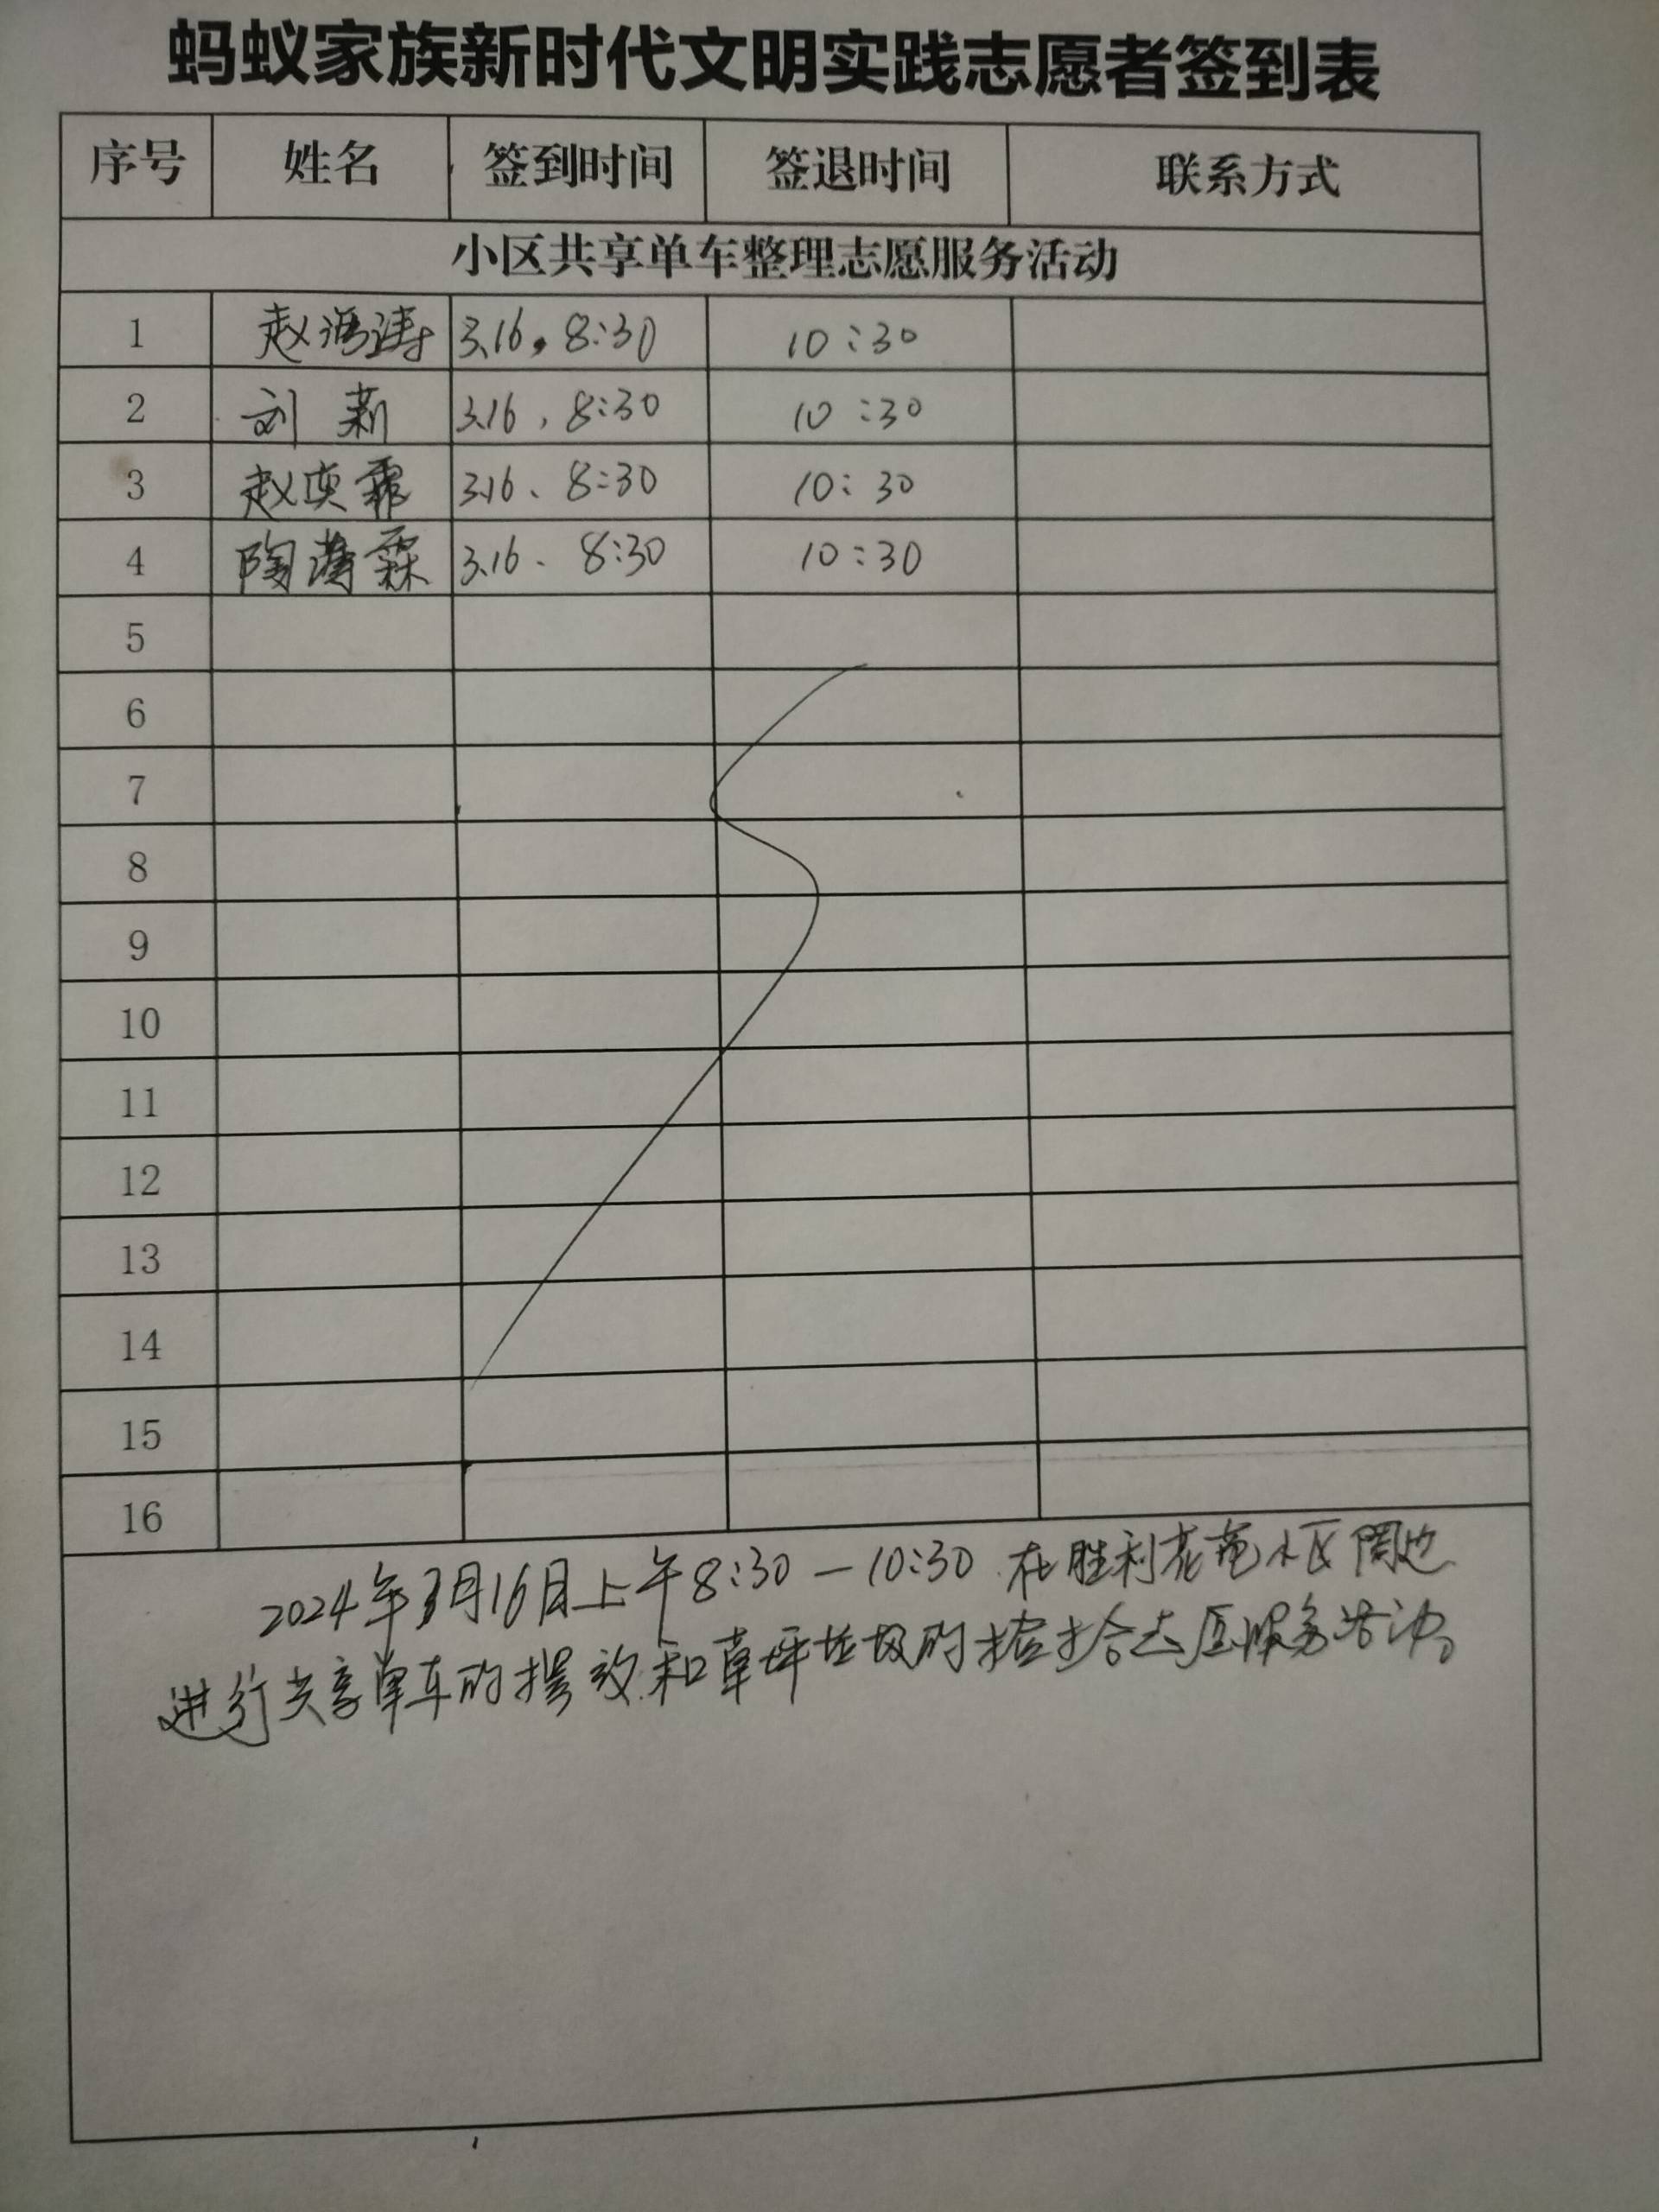 蚂蚁家族新时代文明实践志愿者签到表
序号 姓名 签到时间 签退时间 联系方式
小区共享单车整理志愿服务活动
1 赵 涛 3.16, 8:30 10:30
2 刘莉 3.16, 8:30 10:30
3 赵奕霏 3.16、8:30 10:30
4 陶 霖 3.16、8:30 10:30
5
6
7
8
9
10
11
12
13
14
15
16
2024年3月16日上午8:30—10:30 在胜利花苑小区周边
进行共享单车的摆放和草坪垃圾的捡拾志愿服务活动。